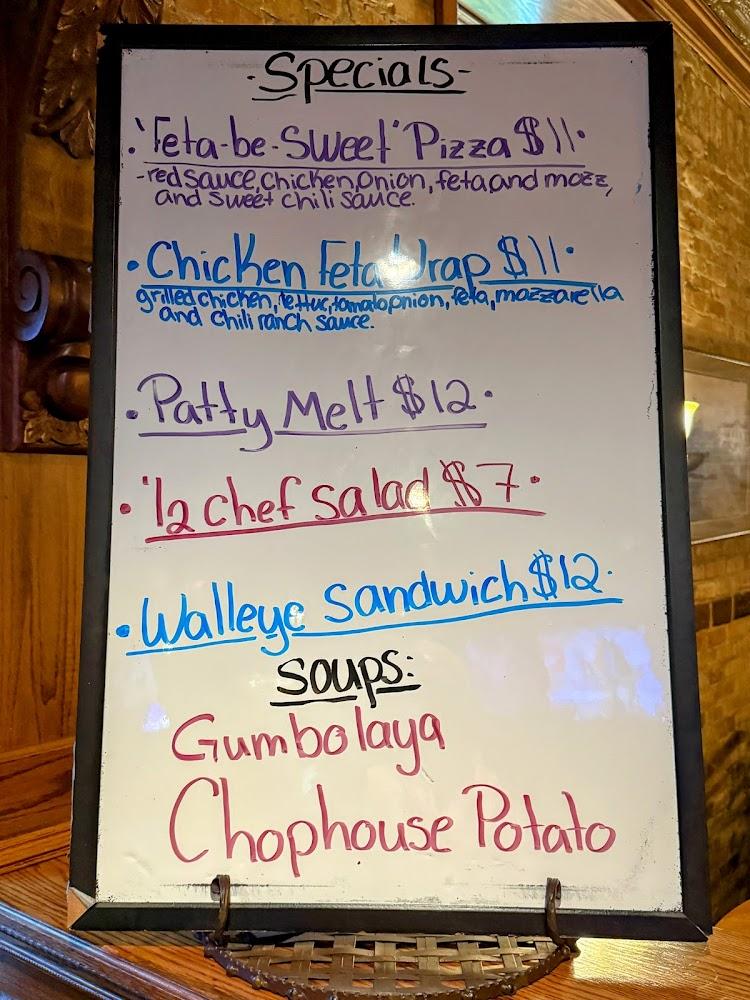 -Specials-
·"Feta-be-Sweet" Pizza $11·
-red sauce, chicken, onion, feta, and mozz,
and sweet chili sauce.
·Chicken Feta Wrap $11·
grilled chicken, lettuc, tomato, onion, feta, mozzarella
and chili ranch sauce.
·Patty Melt $12·
·1/2 chef salad $7·
·Walleye Sandwich $12·
Soups:
Gumbolaya
Chophouse Potato